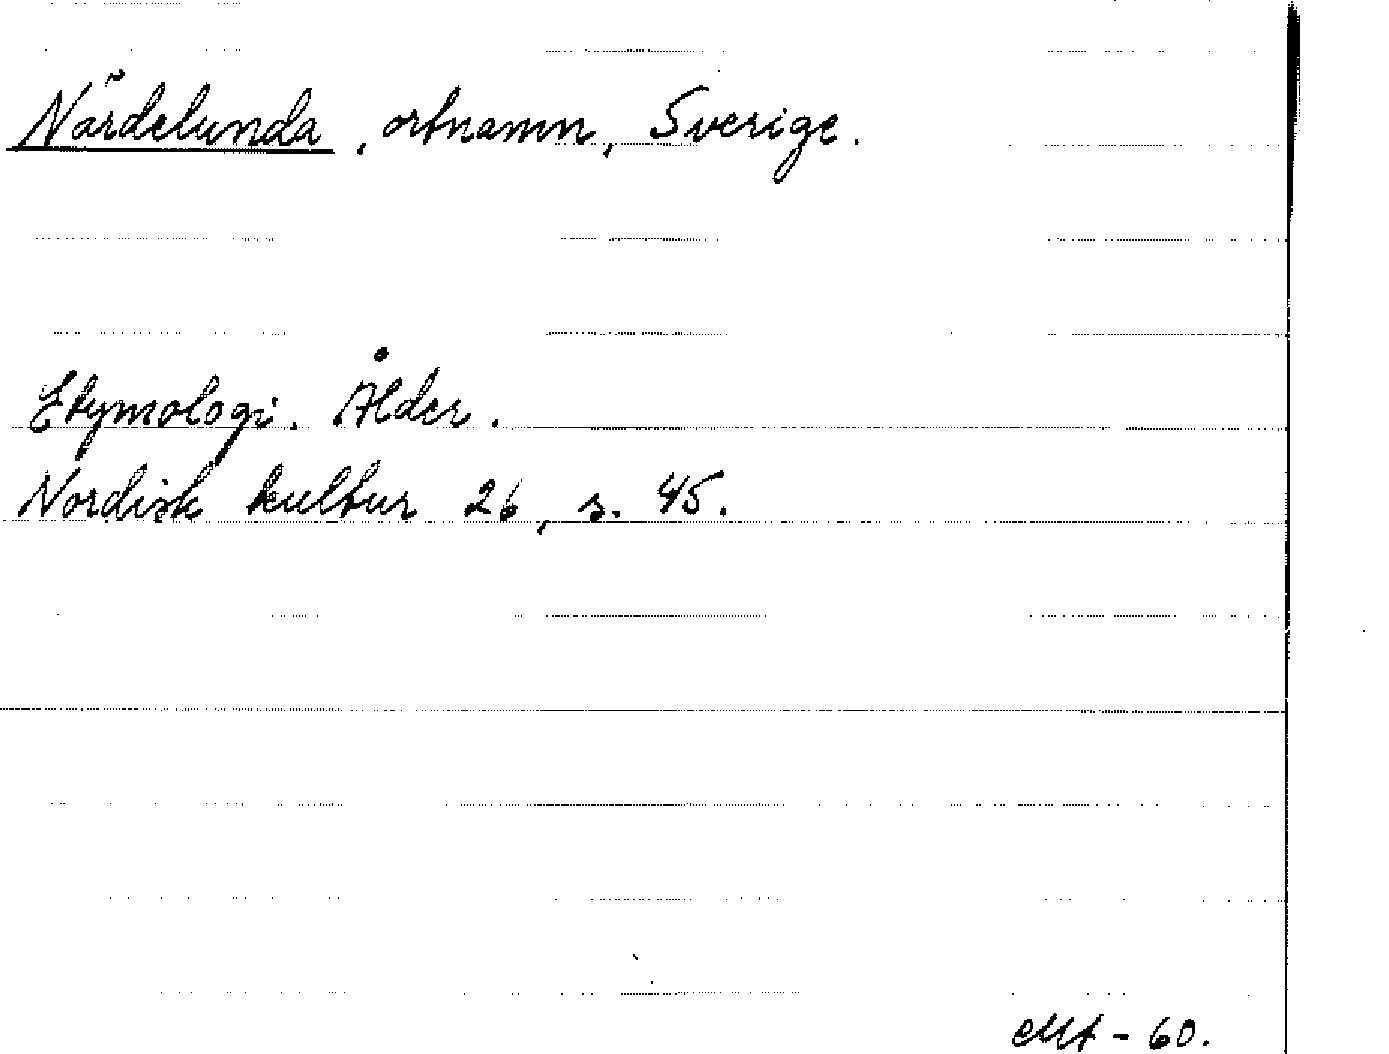 Närdelunda, ortnamn, Sverige.
Etymologi. Ålder.
Nordisk kultur 26, s. 45.
- 60.